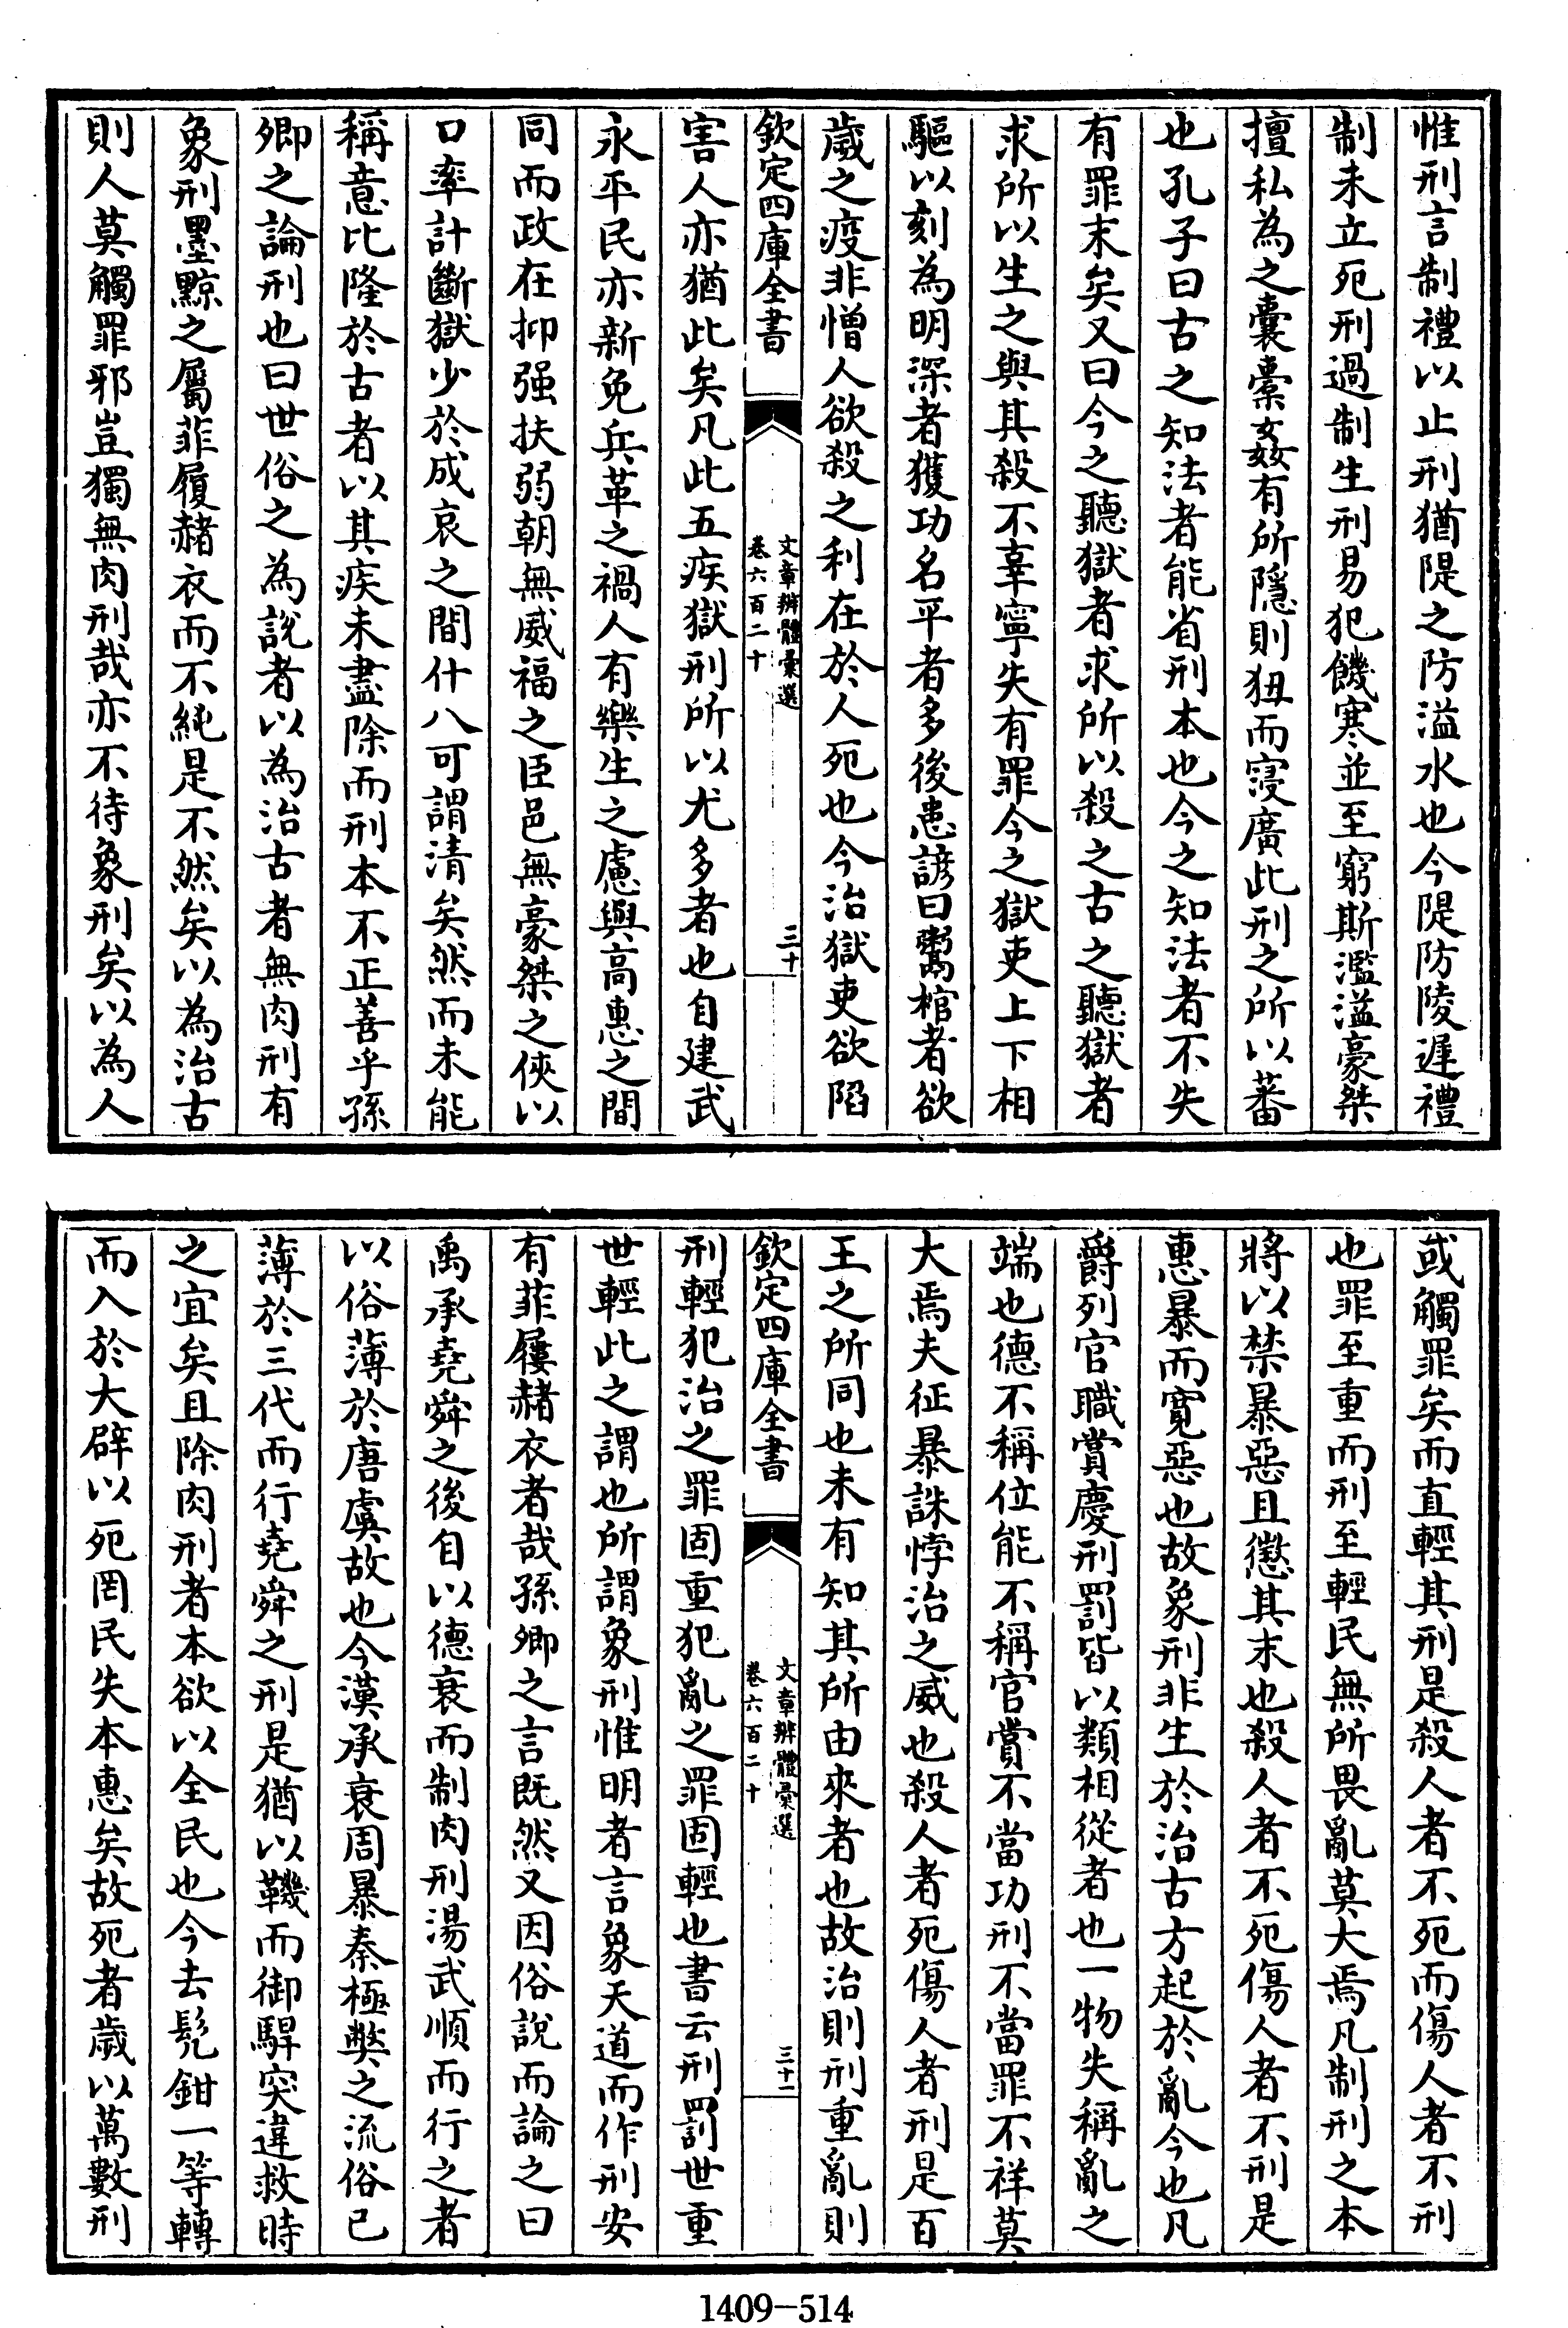 惟刑言制禮以止刑猶隄之防溢水也今隄防陵遲禮
制未立死刑過制生刑易犯饑寒並至窮斯濫溢豪桀
擅私為之囊橐姦有所隱則狃而寖廣此刑之所以蕃
也孔子曰古之知法者能省刑本也今之知法者不失
有罪末矣又曰今之聽獄者求所以殺之古之聽獄者
求所以生之與其殺不辜寧失有罪今之獄吏上下相
驅以刻為明深者獲功名平者多後患諺曰鬻棺者欲
歲之疫非憎人欲殺之利在於人死也今治獄吏欲陷
欽定四庫全書
文章辨體彙選
卷六百二十
三十
害人亦猶此矣凡此五疾獄刑所以尤多者也自建武
永平民亦新免兵革之禍人有樂生之慮與高惠之間
同而政在抑强扶弱朝無威福之臣邑無豪桀之俠以
口率計斷獄少於成哀之間什八可謂清矣然而未能
稱意比隆於古者以其疾未盡除而刑本不正善乎孫
卿之論刑也曰世俗之為說者以為治古者無肉刑有
象刑墨黥之屬菲履赭衣而不純是不然矣以為治古
則人莫觸罪邪豈獨無肉刑哉亦不待象刑矣以為人
或觸罪矣而直輕其刑是殺人者不死而傷人者不刑
也罪至重而刑至輕民無所畏亂莫大焉凡制刑之本
將以禁暴惡且懲其末也殺人者不死傷人者不刑是
惠暴而寬惡也故象刑非生於治古方起於亂今也凡
爵列官職賞慶刑罰皆以類相從者也一物失稱亂之
端也德不稱位能不稱官賞不當功刑不當罪不祥莫
大焉夫征暴誅悖治之威也殺人者死傷人者刑是百
王之所同也未有知其所由來者也故治則刑重亂則
欽定四庫全書
文章辨體彙選
卷六百二十
三十一
刑輕犯治之罪固重犯亂之罪固輕也書云刑罰世重
世輕此之謂也所謂象刑惟明者言象天道而作刑安
有菲屨赭衣者哉孫卿之言既然又因俗說而論之曰
禹承堯舜之後自以德衰而制肉刑湯武順而行之者
以俗薄於唐虞故也今漢承衰周暴秦極弊之流俗已
薄於三代而行堯舜之刑是猶以鞿而御駻突違救時
之宜矣且除肉刑者本欲以全民也今去髡鉗一等轉
而入於大辟以死罔民失本惠矣故死者歲以萬數刑
1409-514